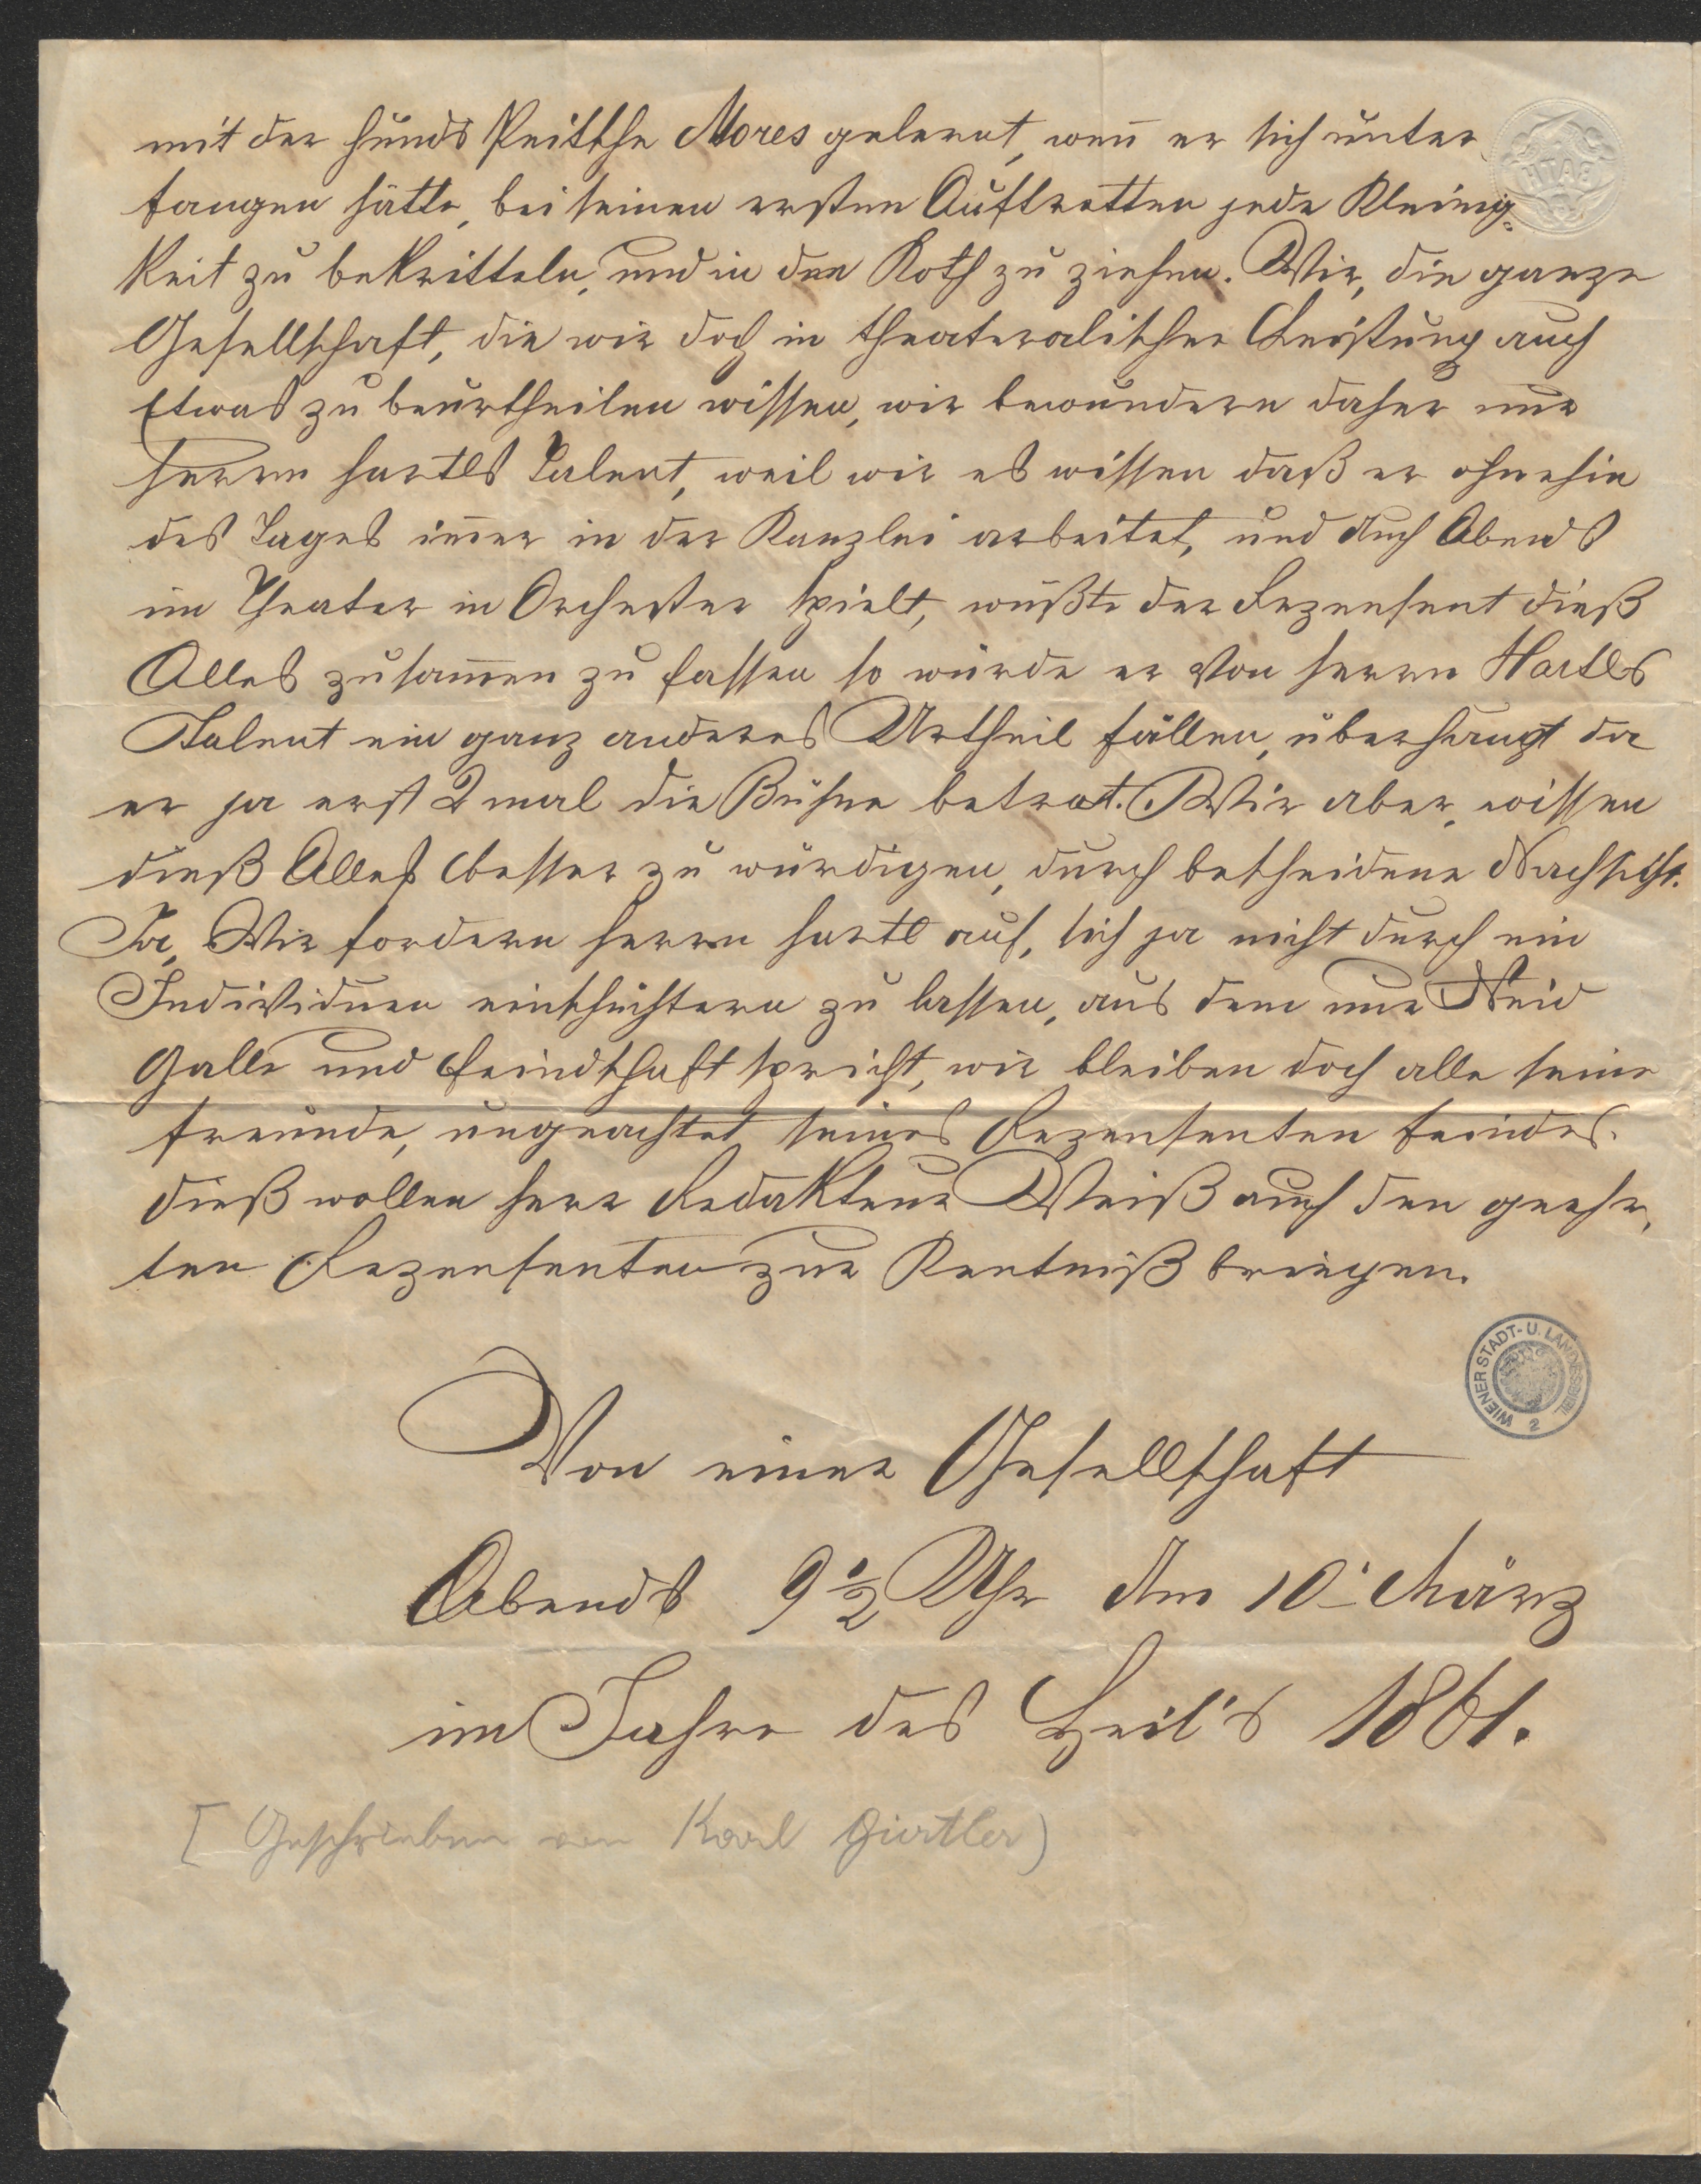 mit der Hunds Peitsche Mores gelernt, wen̄ er sich unter
fangen hätte, bei seinen ersten Auftretten jede Kleinig=
keit zu bekritteln, und in den Koth zu ziehen. Wir, die ganze
Gesellschaft, die wir doch in theateralischer Leistung auch
Etwas zu beurtheilen wissen, wir bewundern daher nur
Herrn Hartls Talent, weil wir es wissen daß er ohnehin
des Tages im̄er in der Kanzlei arbeitet, und Auch Abends
im Theater in Orchester spielt, wüßte der Rezensent dieß
Alles zusam̄en zu fassen so würde er Von Herrn Hartls
Talent ein ganz anderes Urtheil fällen, überhaupt da
er ja erst 2 mal die Bühne betrat. Wir aber, wissen
dieß Alles besser zu würdigen, durch bescheidene Nachsicht.
Ja, Wir fordern Herrn Hartl auf, sich ja nicht durch ein
Individuen einschüchtern zu lassen, aus dem nur Neid
Galle und Feindschaft spricht, wir bleiben doch alle seine
Freunde, ungeachtet seines Rezensenten Feindes.
Dieß wollen Herr Redakteur Weiß auch den geehr,
ten Rezensenten zur Kentniß bringen.
WIENER STADT- U. LANDESBIBL.
2
BATH
Von einer Gesellschaft
Abends 9 1/2 Uhr Am 10t März
im Jahre des Heil's 1861.
[Geschrieben von Karl Gürtler)